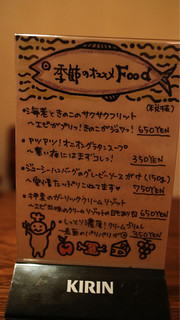 季節のオススメ Food
(税抜)
・海老ときのこのサクサクフリット
～エビがプリッ!きのこがジュワッ! 650YEN
・アツアツ!オニオングラタンスープ
～寒い夜にはまずコレっ! 350YEN
・ジューシーハンバーグのグレービーソースがけ(150g)
～愛情たっぷりこねてます♥ 750YEN
・海老のガーリッククリームリゾット
650YEN
・しっとり濃厚!クリームブリュレ
～表面のパリパリが 350YEN
KIRIN